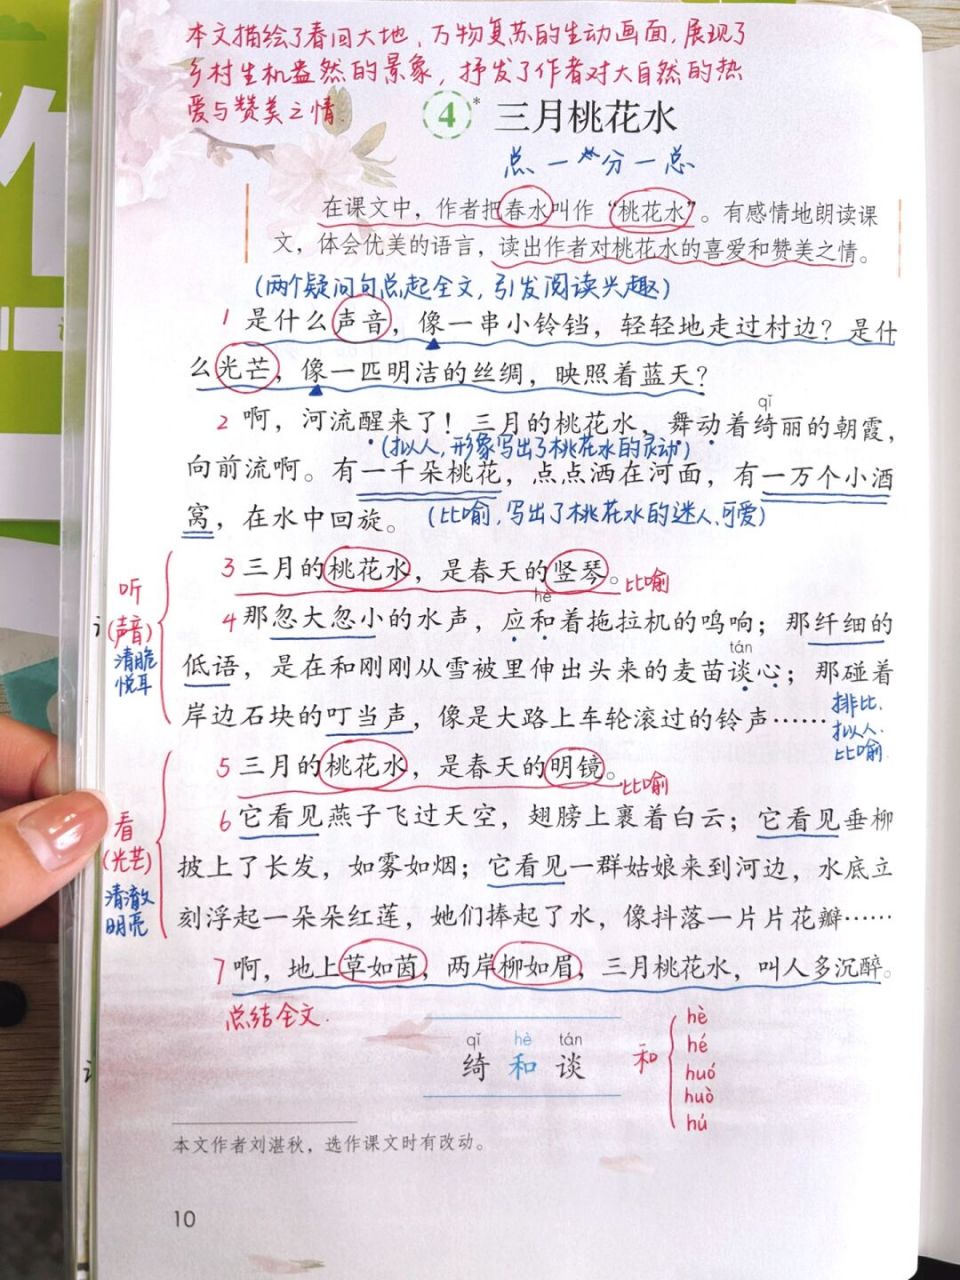 本文描绘了春回大地、万物复苏的生动画面，展现了
乡村生机盎然的景象，抒发了作者对大自然的热
爱与赞美之情.
4* 三月桃花水
总一分一总
在课文中，作者把春水叫作“桃花水”。有感情地朗读课
文，体会优美的语言，读出作者对桃花水的喜爱和赞美之情。
(两个疑问句总起全文，引发阅读兴趣)
1 是什么声音，像一串小铃铛，轻轻地走过村边？是什
么光芒，像一匹明洁的丝绸，映照着蓝天？
qǐ
2 啊，河流醒来了！三月的桃花水，舞动着绮丽的朝霞，
(拟人，形象写出了桃花水的灵动)
向前流啊。有一千朵桃花，点点洒在河面，有一万个小酒
窝，在水中回旋。 (比喻，写出了桃花水的迷人、可爱)
3 三月的桃花水，是春天的竖琴。 比喻
hè
4 那忽大忽小的水声，应和着拖拉机的鸣响；那纤细的
tán
低语，是在和刚刚从雪被里伸出头来的麦苗谈心；那碰着
岸边石块的叮当声，像是大路上车轮滚过的铃声……
听
(声音)
清脆
悦耳
排比.
拟人.
比喻
5 三月的桃花水，是春天的明镜。 比喻
6 它看见燕子飞过天空，翅膀上裹着白云；它看见垂柳
披上了长发，如雾如烟；它看见一群姑娘来到河边，水底立
刻浮起一朵朵红莲，她们捧起了水，像抖落一片片花瓣……
看
(光芒)
清澈
明亮
7 啊，地上草如茵，两岸柳如眉，三月桃花水，叫人多沉醉。
总结全文.
qǐ hè tán
绮 和 谈
和
hè
hé
huó
huò
hú
本文作者刘湛秋，选作课文时有改动。
10